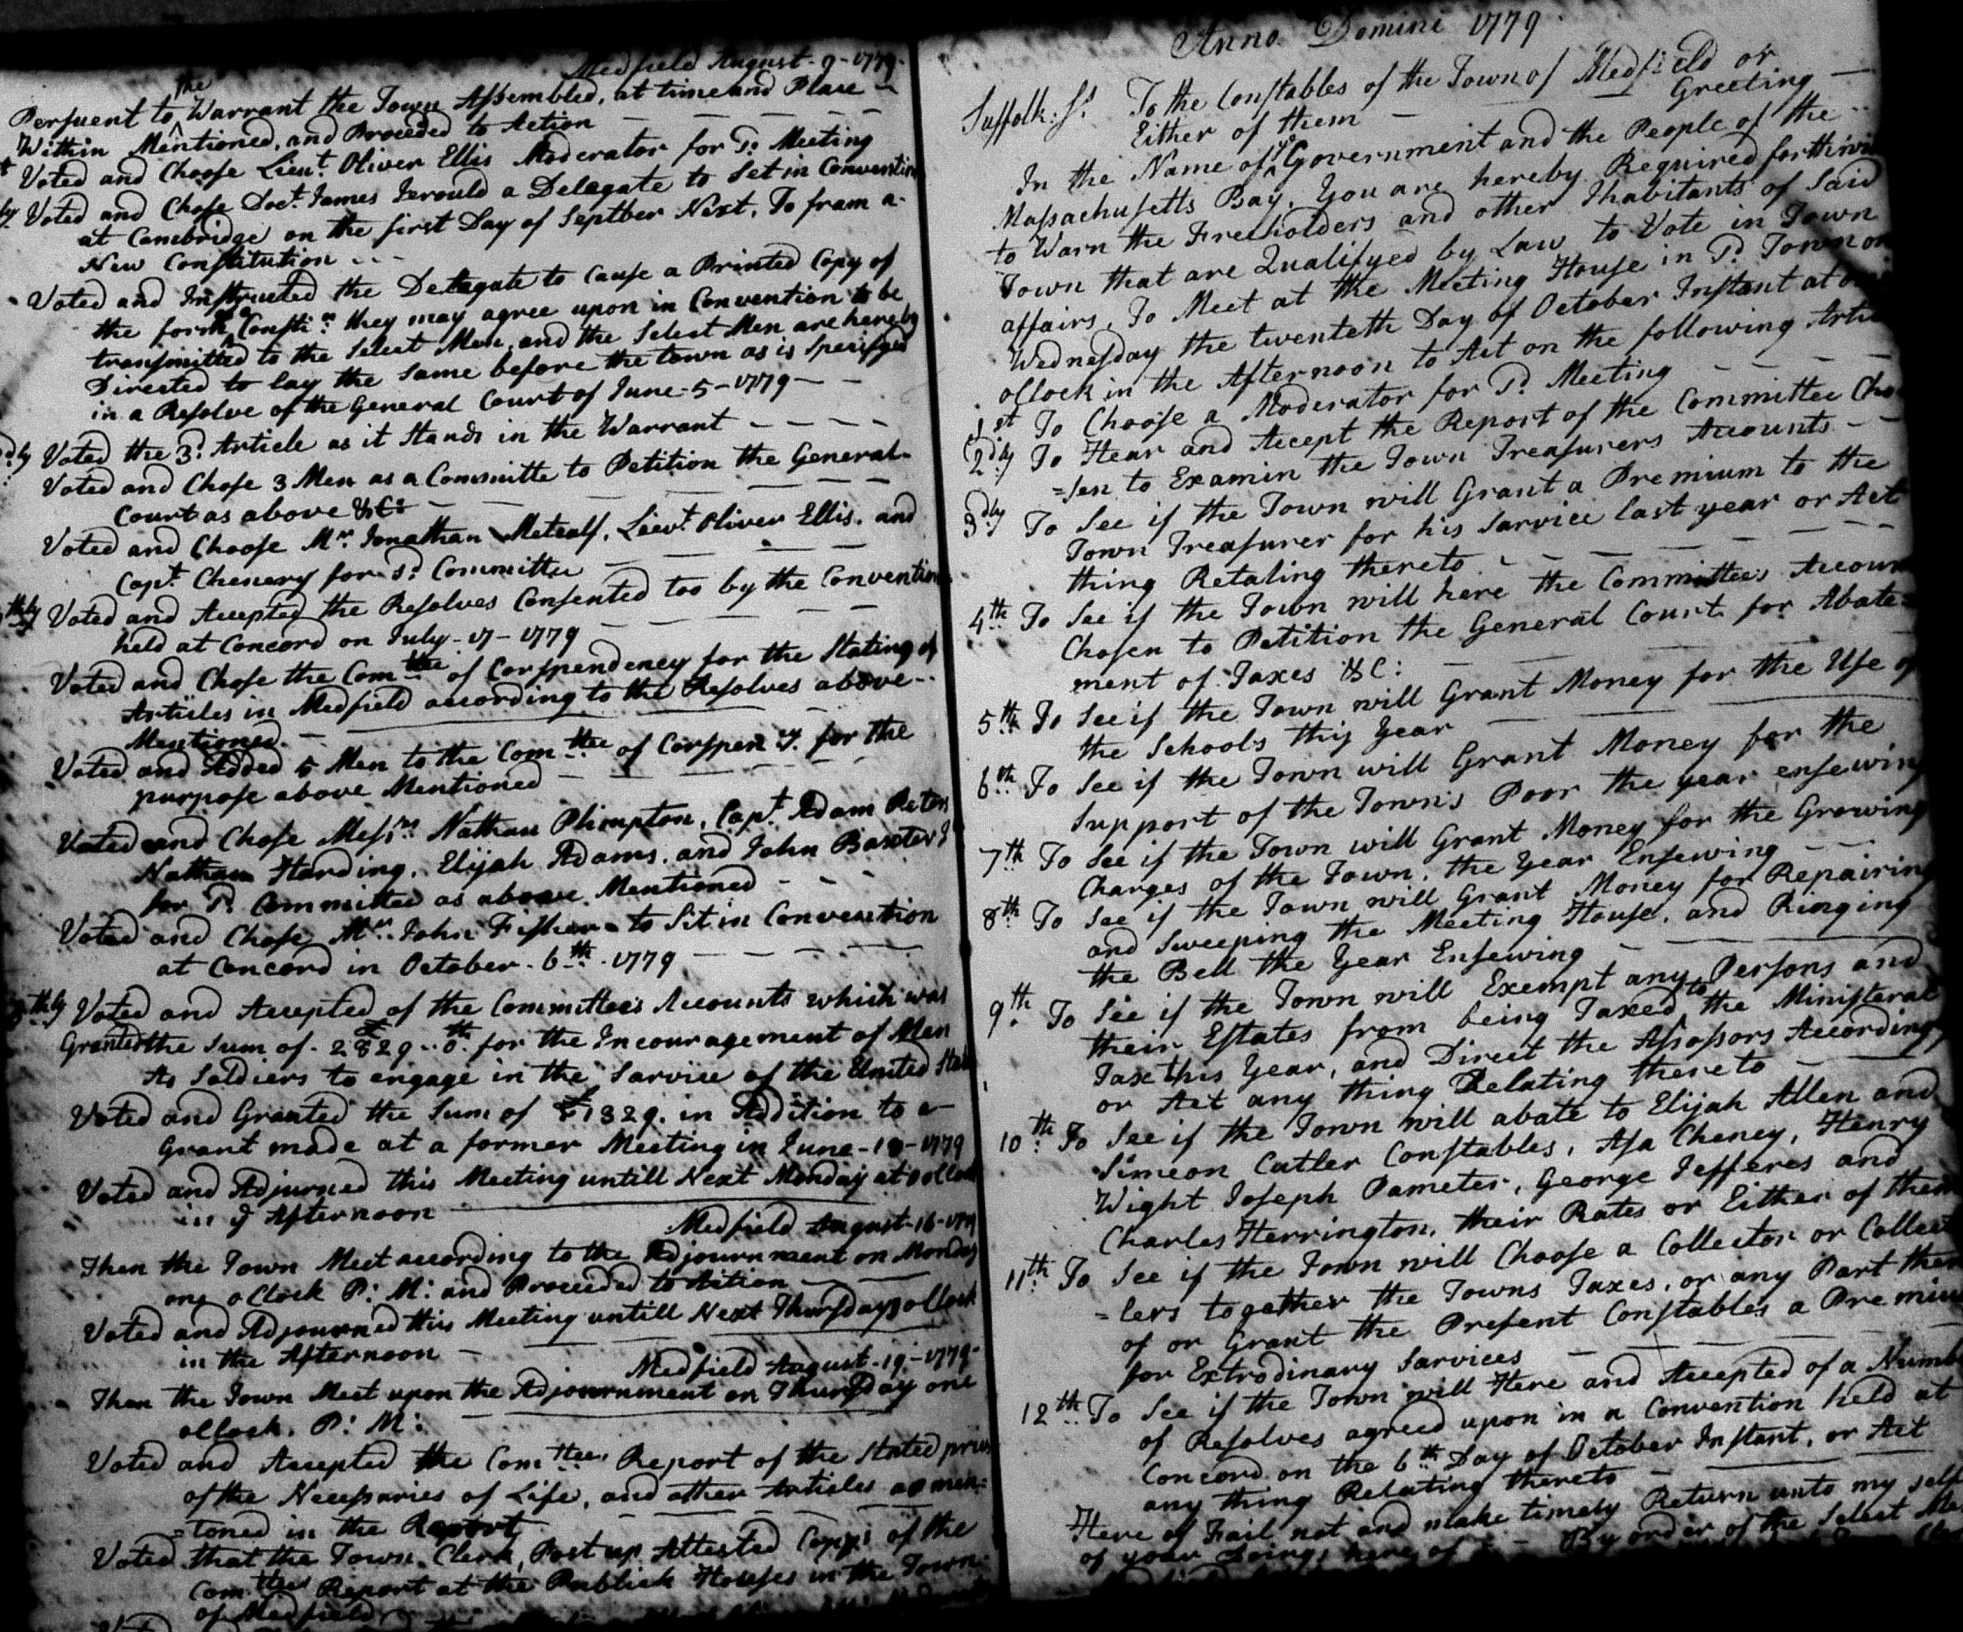 Medfield August - 9 - 1779 -
Persuent to the Warrant the Town Assembled, at time and Place
Within Mentioned, and Proceded to Action
Voted and Choose Lieut. Oliver Ellis Moderator for Sd. Meeting
Voted and Chose Doct. James Jerould a Delegate to Set in Convention
at Cambridge on the first Day of Septber Next. To fram a
New Constitution
Voted and Instructed the Delegate to Cause a Printed Copy of
the form of a Consti.n they may agree upon in Convention to be
transmitted to the Select Men, and the Select Men are hereby
Directed to lay the Same before the town as is Specifyed
in a Resolve of the General Court of June - 5 - 1779 -
Voted the 3d. Article as it Stands in the Warrant
Voted and Chose 3 Men as a Committe to Petition the General
Court as above &C:
Voted and Choose Mr. Jonathan Metcalf, Lieut. Oliver Ellis, and
Capt. Chenery for Sd. Committee
thly Voted and Accepted the Resolves Consented too by the Convention
held at Concord on July - 17 - 1779
Voted and Chose the Comttee of Corspendency for the Stating of
Articles in Medfield according to the Resolves above
Mentioned
Voted and Added 5 Men to the Comttee of Corspen.y. for the
purpose above Mentioned
Voted and Chose Messrs. Nathan Plimpton, Capt. Adam Peters
Nathan Harding, Elijah Adams, and John Baxter
for Sd. Committee as above Mentioned
Voted and Chose Mr. John Fisher to Sit in Convention
at Concord in October - 6th - 1779
thly Voted and Accepted of the Committees Accounts which was
Granted the Sum of for the Encouragement of Men
As Soldiers to engage in the Sarvice of the United
Voted and Granted the Sum of £1329. in Addition to a
Grant made at a former Meeting in June - 1779
Voted and Adjurned this Meeting untill Next Monday at
in ye Afternoon
Medfield August - 16 - 1779
Then the Town Meet according to the Adjournment on Monday
one oClock P: M: and Proceeded to Action
Voted and Adjourned this Meeting untill Next Thursday oClock
in the Afternoon
Medfield August - 19 - 1779 -
Then the Town Meet upon the Adjournment on Thursday one
oClock. P: M:
Voted and Accepted the Comttees Report of the Stated
of the Necessaries of Life, and other Articles as men:
=toned in the Report
Voted that the Town Clerk, Post up Attested Copys of the
Comttees Report at the Publick Houses in the Town
of Medfield
Anno Domini 1779
Suffolk: Ss. To the Constables of the Town of Medfield or
Either of them Greeting
In the Name of ye Government and the People of the
Massachusetts Bay, You are hereby Required forthwith
to Warn the Freeholders and other Inhabitants of Said
Town that are Qualifyed by Law to Vote in Town
affairs, To Meet at the Meeting House in Sd. Town on
Wednesday the twenteth Day of October Instant at
oClock in the Afternoon to Act on the following
1st To Choose a Moderator for Sd. Meeting
2dly To Hear and Accept the Report of the Committee Cho
=sen to Examin the Town Treasurers Accounts
3dly To See if the Town will Grant a Premium to the
Town Treasurer for his Sarvice last year or Act
thing Retaling thereto
4th To See if the Town will here the Committees
Chosen to Petition the General Court for Abate=
ment of Taxes &C:
5th To See if the Town will Grant Money for the Use of
the Schools this Year
6th To See if the Town will Grant Money for the
Support of the Town's Poor the year ensewing
7th To See if the Town will Grant Money for the Growing
Charges of the Town, the Year Ensewing
8th To See if the Town will Grant Money for Repairing
and Sweeping the Meeting House, and Ringing
the Bell the Year Ensewing
9th To See if the Town will Exempt any Persons and
their Estates from being Taxed to the Ministeral
Tax this Year, and Direct the Assossors Accordingly
or Act any thing Relating thereto
10th To See if the Town will abate to Elijah Allen and
Simeon Cutler Constables, Asa Cheney, Henry
Wight Joseph Pameter, George Jefferes and
Charles Herrington, their Rates or Either of them
11th To See if the Town will Choose a Collector or Collect
=lers together the Towns Taxes, or any Part
of or Grant the Present Constables a Premium
for Extrodinary Sarvices
12th To See if the Town will Here and Accepted of a Number
of Resolves agreed upon in a Convention held at
Concord on the 6th Day of October Instant, or Act
any thing Relating thereto
Here of Fail not and make timely Return unto my self
of your Doings here of By order of the Select Men